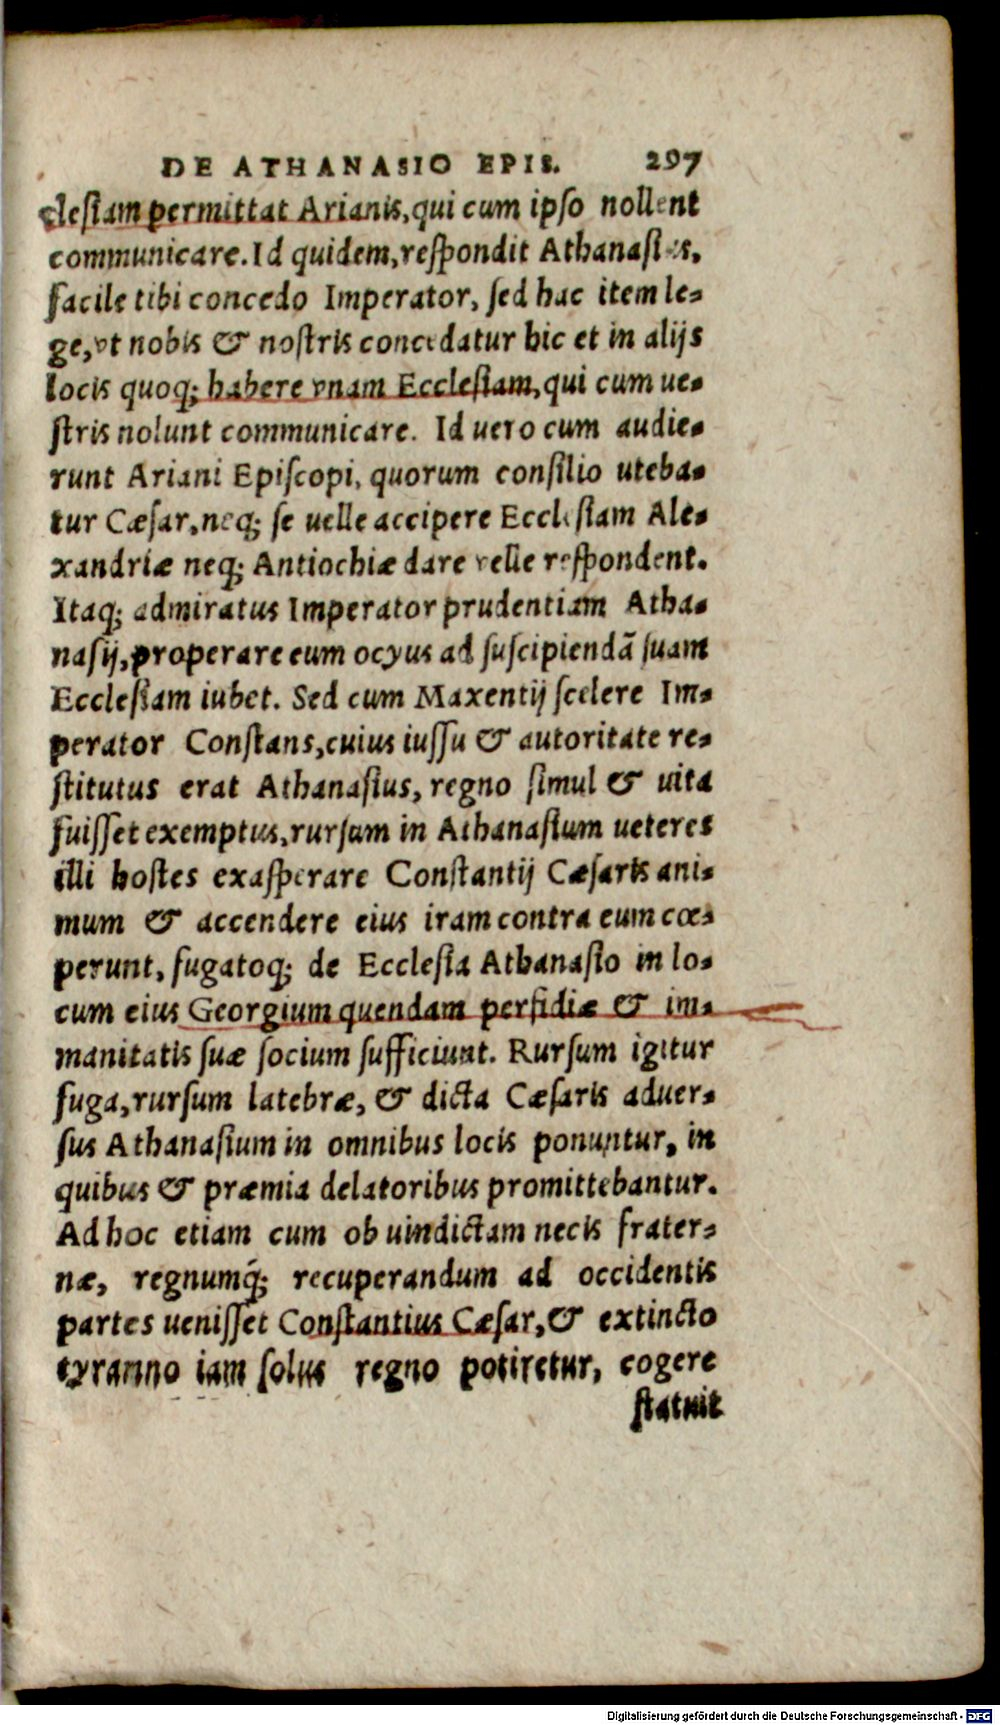 DE ATHANASIO EPIS. 297
clesiam permittat Arianis, qui cum ipso nollent
communicare. Id quidem, respondit Athanasius,
facile tibi concedo Imperator, sed hac item le-
ge, vt nobis & nostris concedatur hic et in alijs
locis quoq; habere vnam Ecclesiam, qui cum ue-
stris nolunt communicare. Id uero cum audie-
runt Ariani Episcopi, quorum consilio uteba-
tur Cæsar, neq; se uelle accipere Ecclesiam Ale-
xandriæ neq; Antiochiæ dare velle respondent.
Itaq; admiratus Imperator prudentiam Atha-
nasij, properare eum ocyus ad suscipiendã suam
Ecclesiam iubet. Sed cum Maxentij scelere Im-
perator Constans, cuius iussu & autoritate re-
stitutus erat Athanasius, regno simul & uita
fuisset exemptus, rursum in Athanasium ueteres
illi hostes exasperare Constantij Cæsaris ani-
mum & accendere eius iram contra eum cœ-
perunt, fugatoq; de Ecclesia Athanasio in lo-
cum eius Georgium quendam perfidiæ & im-
manitatis suæ socium sufficiunt. Rursum igitur
fuga, rursum latebræ, & dicta Cæsaris aduer-
sus Athanasium in omnibus locis ponuntur, in
quibus & præmia delatoribus promittebantur.
Ad hoc etiam cum ob uindictam necis frater-
næ, regnumq́; recuperandum ad occidentis
partes uenisset Constantius Cæsar, & extincto
tyranno iam solus regno potiretur, cogere
statuit
Digitalisierung gefördert durch die Deutsche Forschungsgemeinschaft - DFG